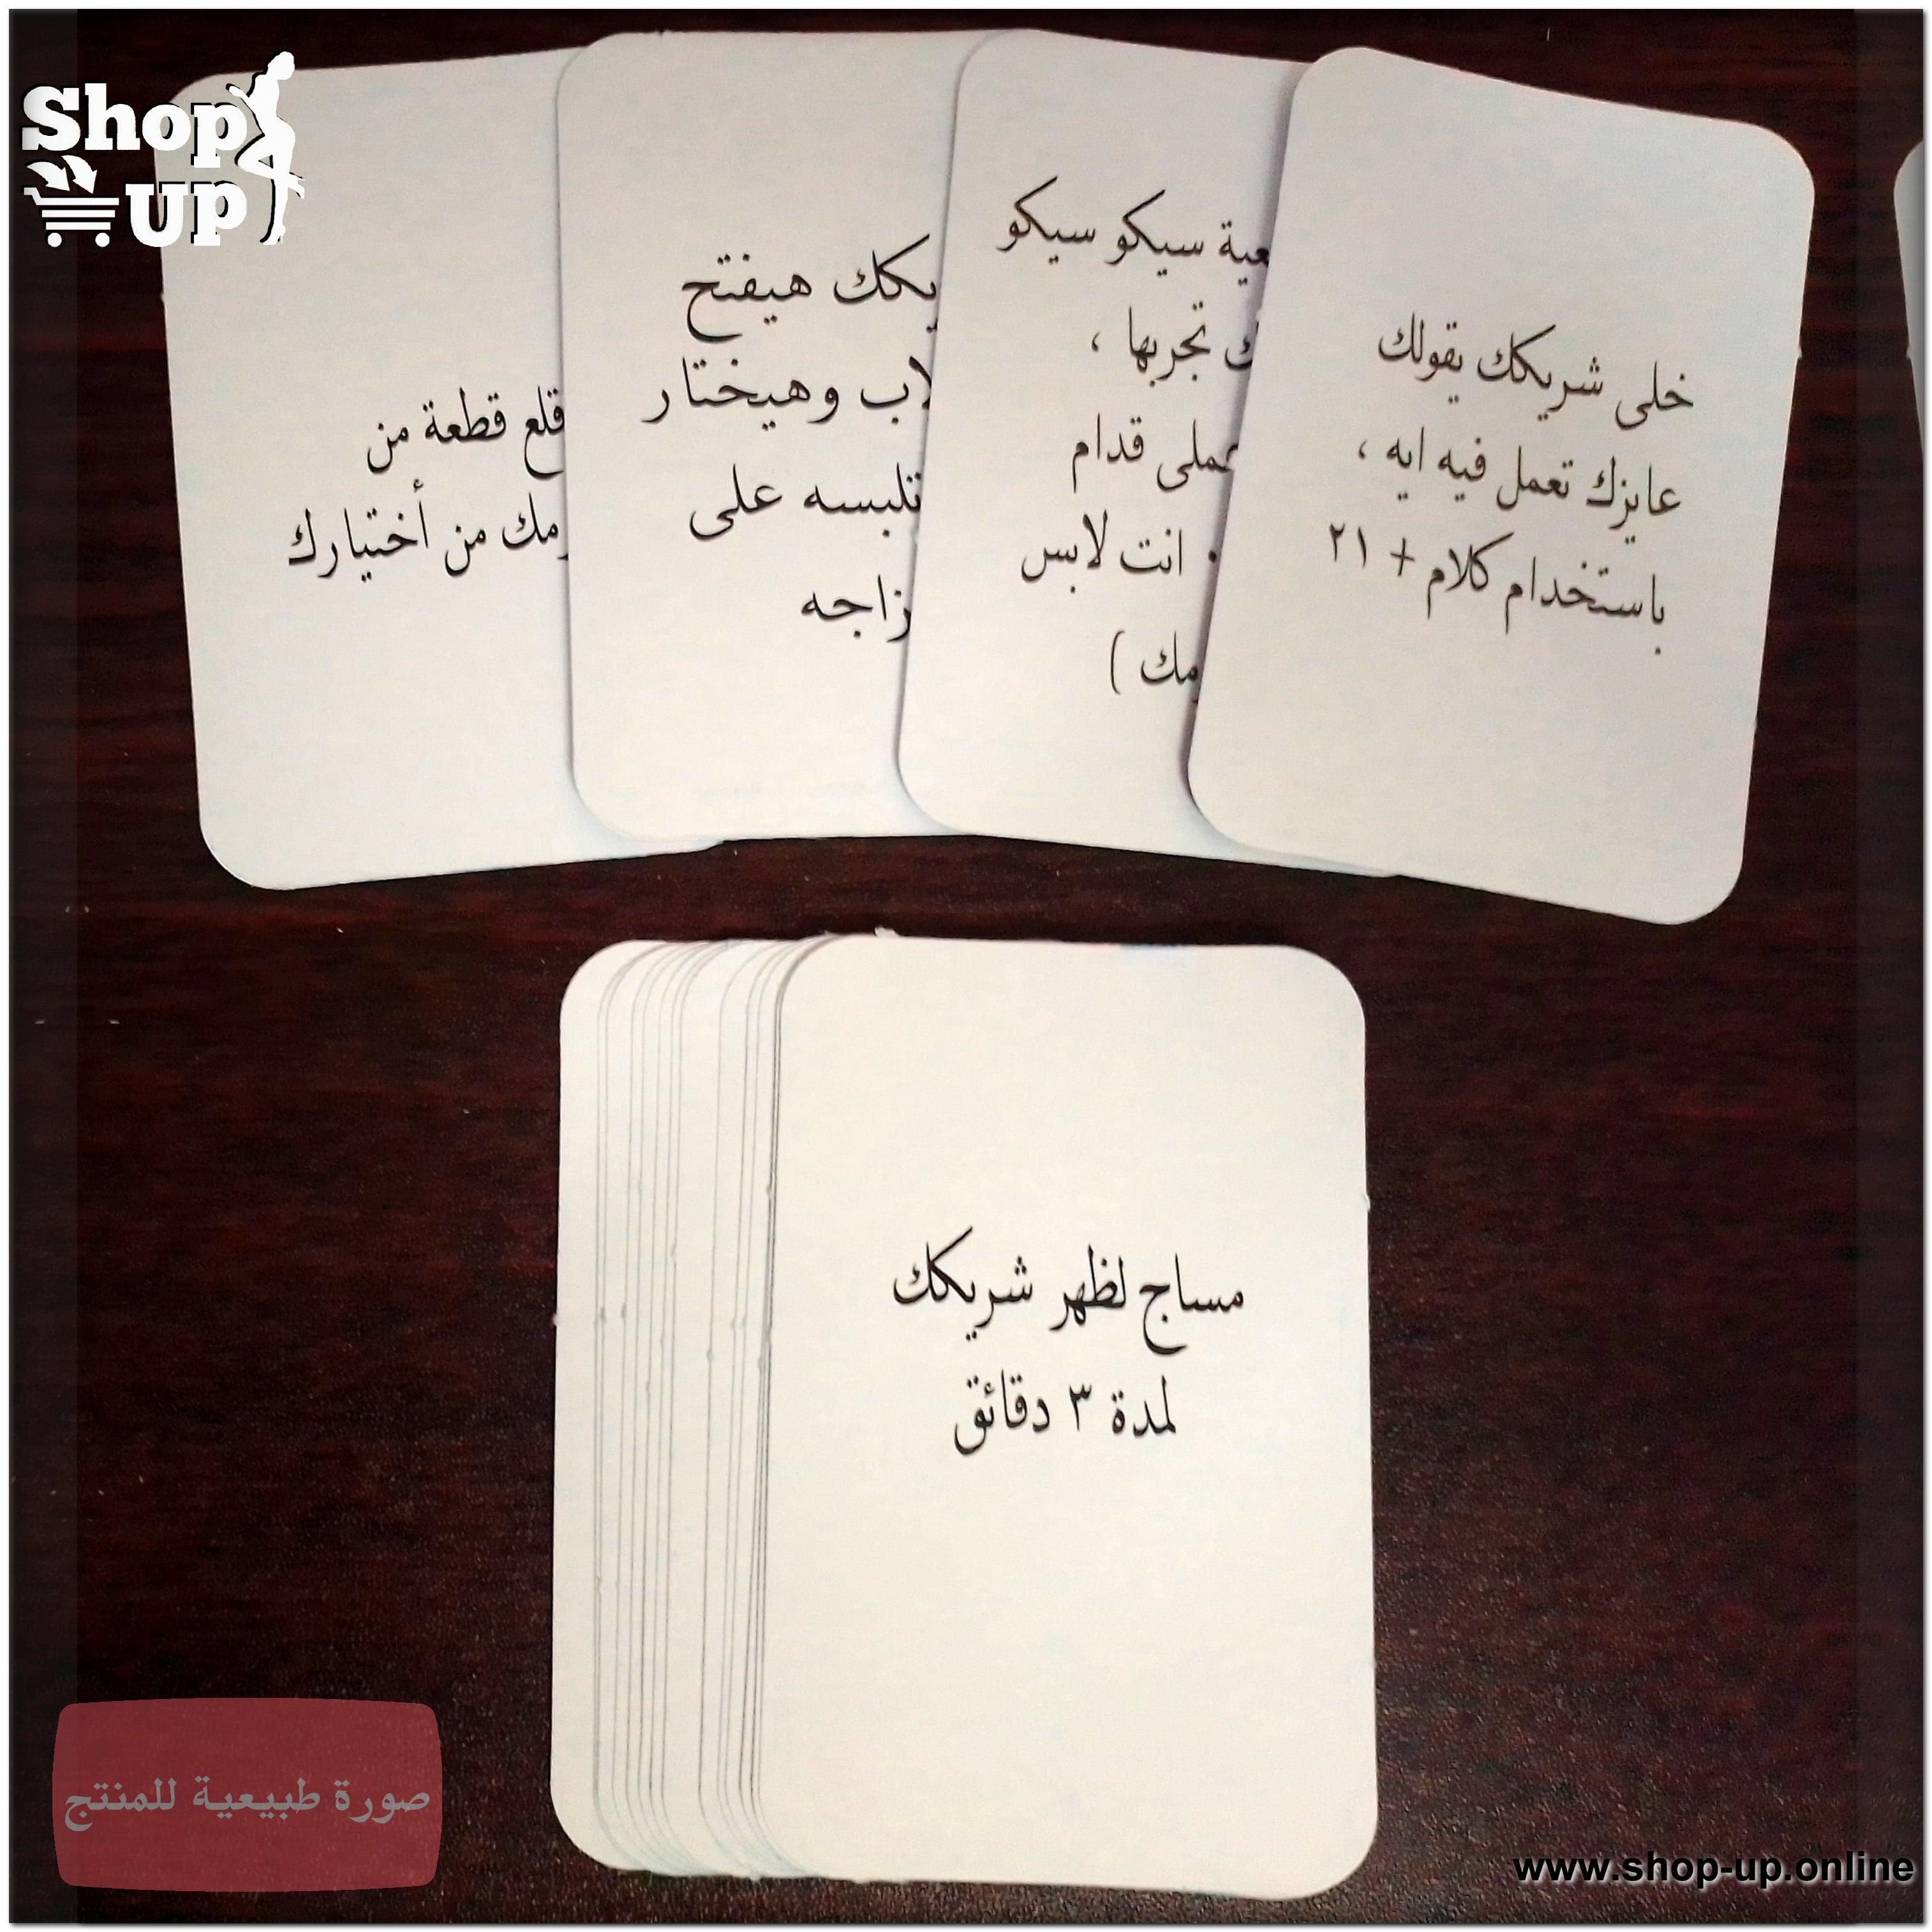 Shop
UP
قلع قطعة من
من أختيارك
هيفتح
وهيختار
تلبسه على
سيكو سيكو
تجربها ،
قدام
انت لابس
خلى شريكك يقولك
عايزك تعمل فيه ايه ،
باستخدام كلام + ٢١
مساج لظهر شريكك
لمدة ٣ دقائق
صورة طبيعية للمنتج
www.shop-up.online